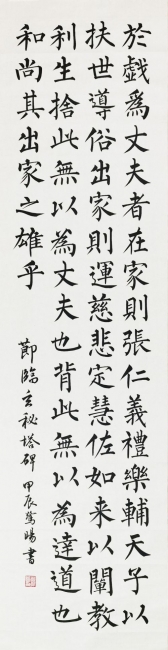 於戲為丈夫者在家則張仁義禮樂輔天子以
扶世導俗出家則運慈悲定慧佐如来以闡教
利生捨此無以為丈夫也背此無以為達道也
和尚其出家之雄乎
節臨玄秘塔碑 甲辰 書